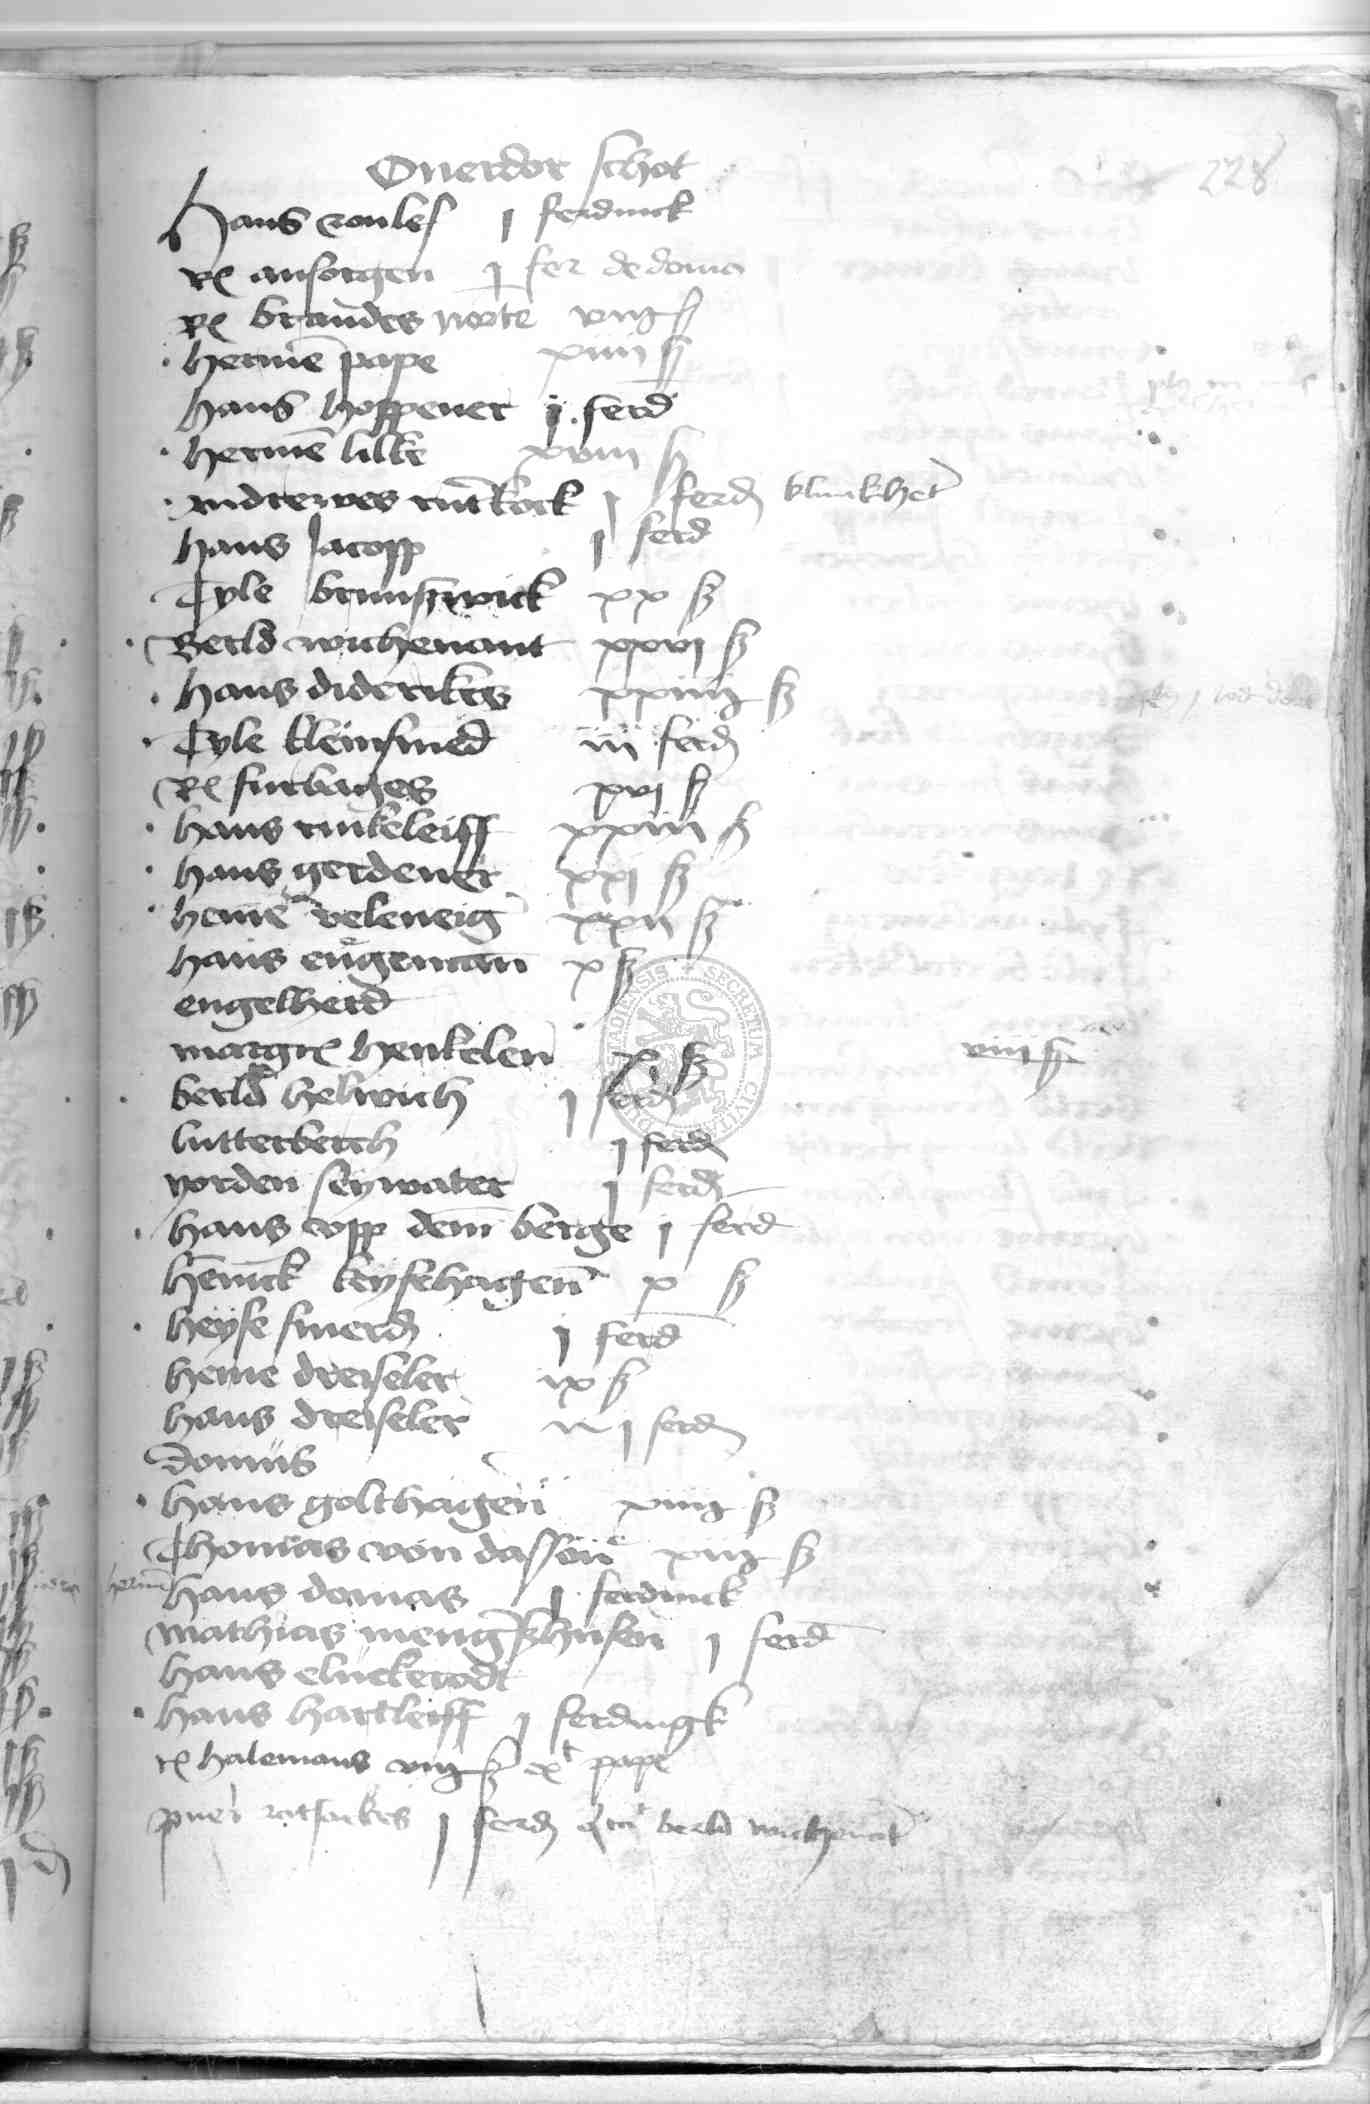 228
Ouerdor schot
Hans conles j ferdinck
Rel ansorgen j fer de domo
Rel brandes norte viij ß
hermē pape xiiii ß
hans hoppener j ferd
hermē lilke xviii ß
andrewes rintkock j ferd
hans Jacopp j ferd
Tyle brunszwick xx ß
Berld wichenant xxvj ß
hans diderikes xxiiij ß
Tyle kleinsmed iii ferd
Rel furhages xvj ß
hans rinkeleiff xxiii ß
hans gerdener xxj ß
heine veleneig xxii ß
hans engeman x ß
engelherd
margr henkelen x ß viii ß
berld helwich j ferd
lutterberch j ferd
yorden seywater j ferd
hans vpp dem berge j ferd
henick keysehagen x ß
heyse smerd j ferd
heine dreiseler ix ß
hans dreiseler j ferd
domus
hans golthagen xiiij ß
Thomas von dassen xiij ß
hans domas j ferdinck
mathias mengershusen j ferd
hans eluckerodt
hans hartleiff j ferdingk
rel halemans viij ß pape
pueri ratsackes j ferd berld wichenant
SECRETUM CIVITAS